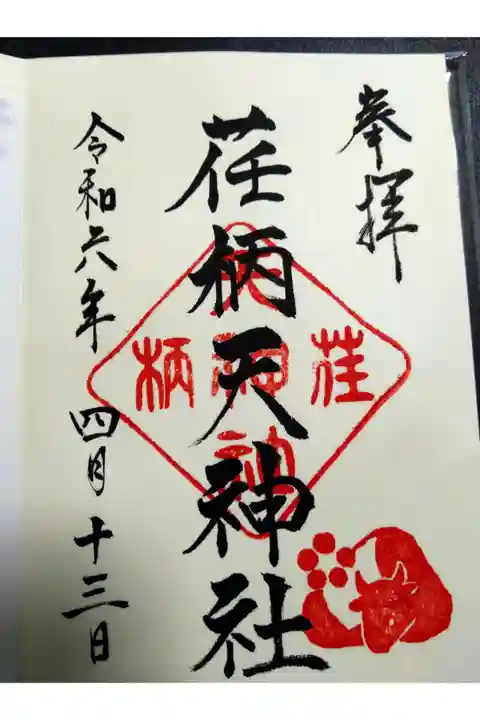 奉拝
荏柄天神社
荏柄
令和六年 四月十三日